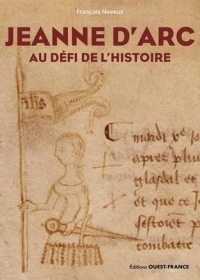 François Neveux
JEANNE D'ARC
AU DÉFI DE L'HISTOIRE
Mardi x
apres plu
glasdal et
et que ce
sesforent p
combatic
Éditions OUEST-FRANCE